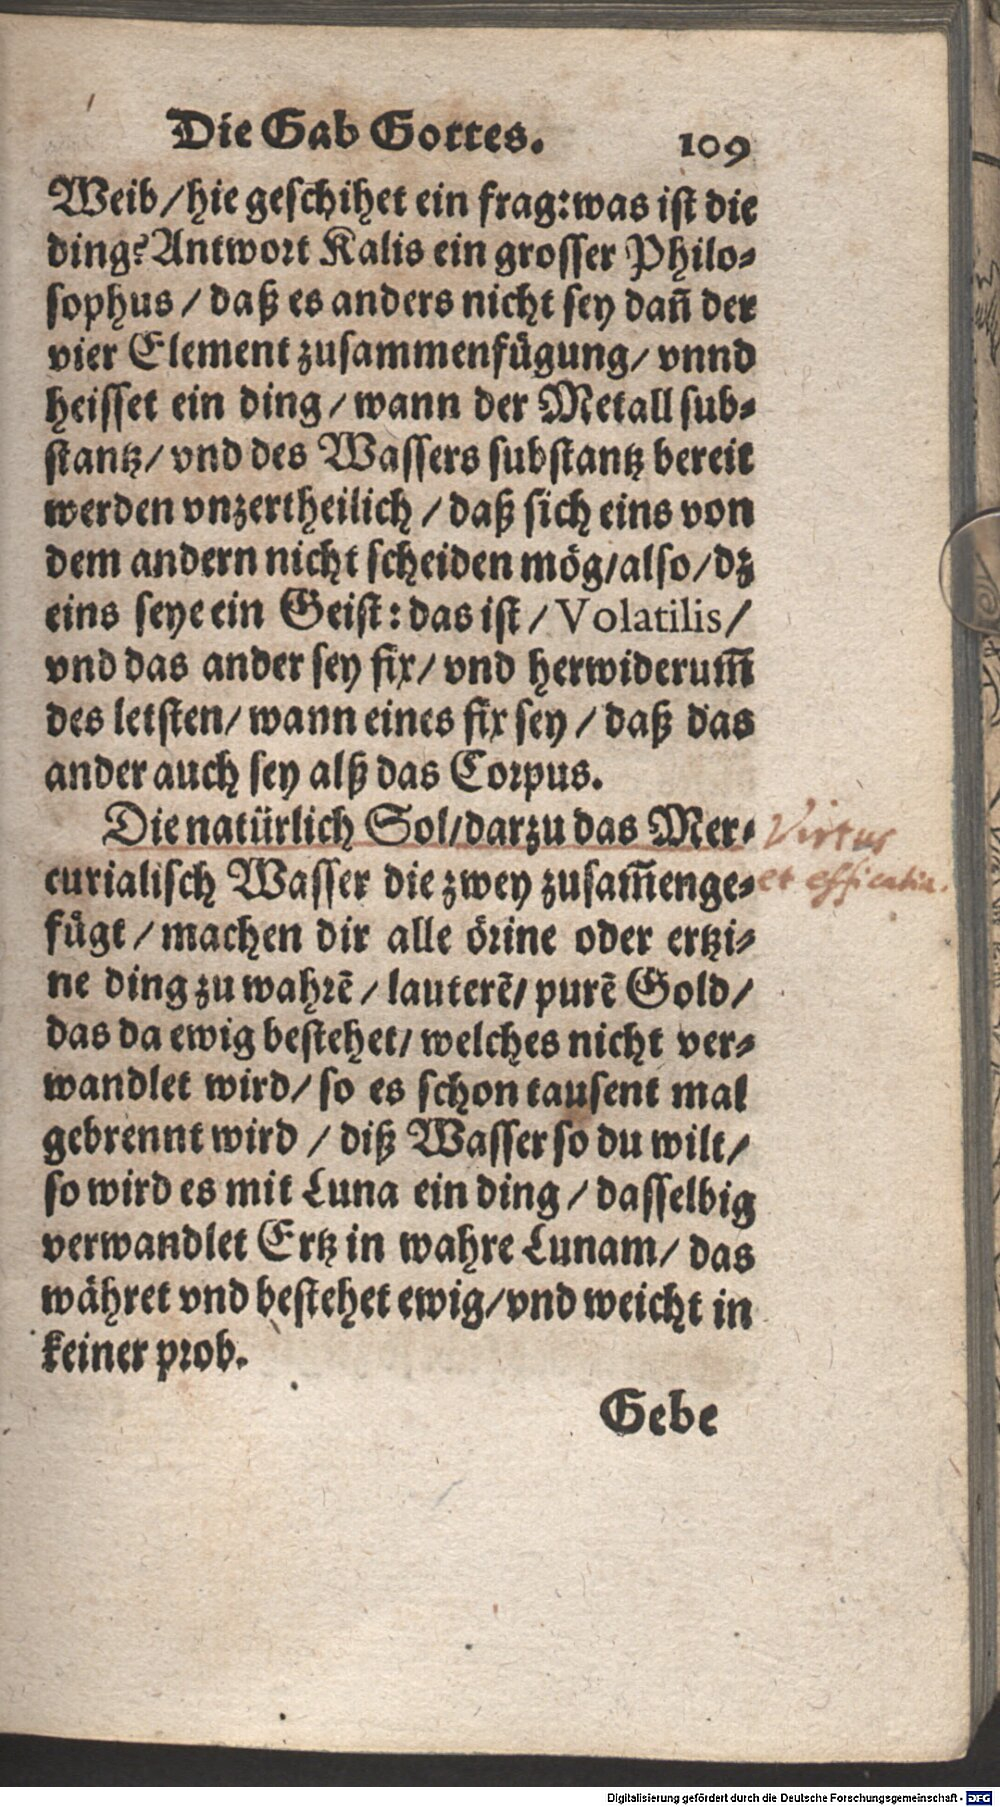 Die Gab Gottes. 109
Weib / hie geschihet ein frag: was ist die
ding? Antwort Kalis ein grosser Philo-
sophus / daß es anders nicht sey dañ der
vier Element zusammenfügung / vnnd
heisset ein ding / wann der Metall sub-
stantz / vnd des Wassers substantz bereit
werden vnzertheilich / daß sich eins von
dem andern nicht scheiden mög / also / dz
eins seye ein Geist: das ist / Volatilis /
vnd das ander sey fix / vnd herwiderum̃
des letsten / wann eines fix sey / daß das
ander auch sey alß das Corpus.
Die natürlich Sol / darzu das Mer-
curialisch Wasser die zwey zusam̃enge-
fügt / machen dir alle örine oder ertzi-
ne ding zu wahrẽ / lauterẽ / purẽ Gold /
das da ewig bestehet / welches nicht ver-
wandlet wird / so es schon tausent mal
gebrennt wird / diß Wasser so du wilt /
so wird es mit Luna ein ding / dasselbig
verwandlet Ertz in wahre Lunam / das
währet vnd bestehet ewig / vnd weicht in
keiner prob.
Gebe
Virtus
et efficatia.
Digitalisierung gefördert durch die Deutsche Forschungsgemeinschaft - DFG